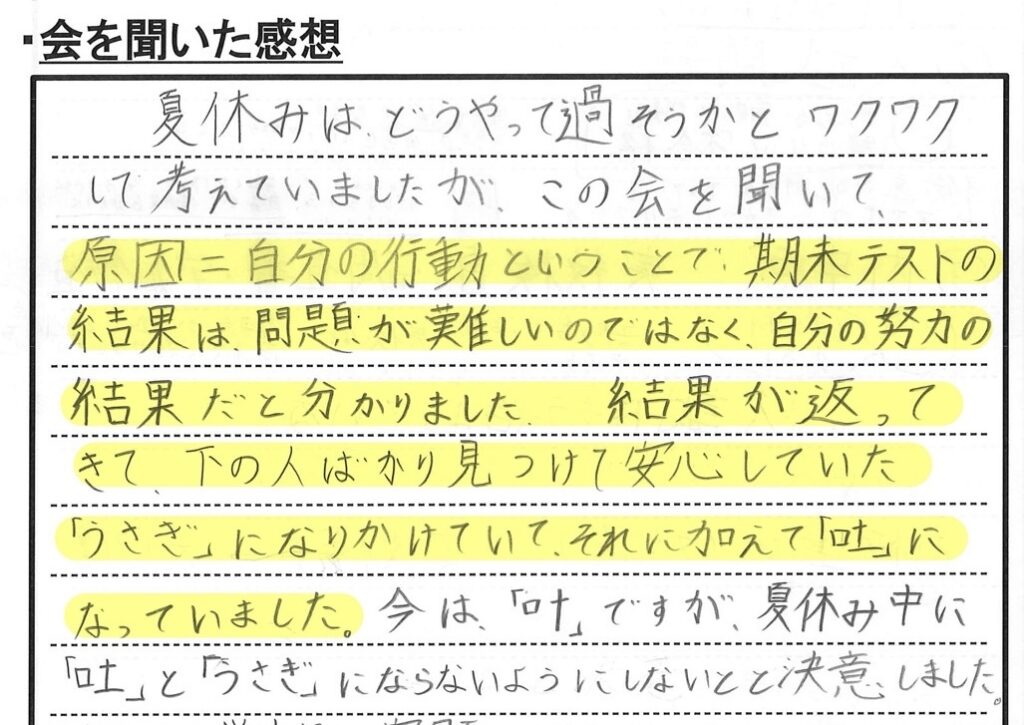 ・会を聞いた感想
夏休みは、どうやって過そうかとワクワク
して考えていましたが、この会を聞いて、
原因=自分の行動ということで、期末テストの
結果は、問題が難しいのではなく、自分の努力の
結果だと分かりました。結果が返って
きて、下の人ばかり見つけて安心していた
「うさぎ」になりかけていて、それに加えて「吐」に
なっていました。今は、「叶」ですが、夏休み中に
「吐」と「うさぎ」にならないようにしないとと決意しました。